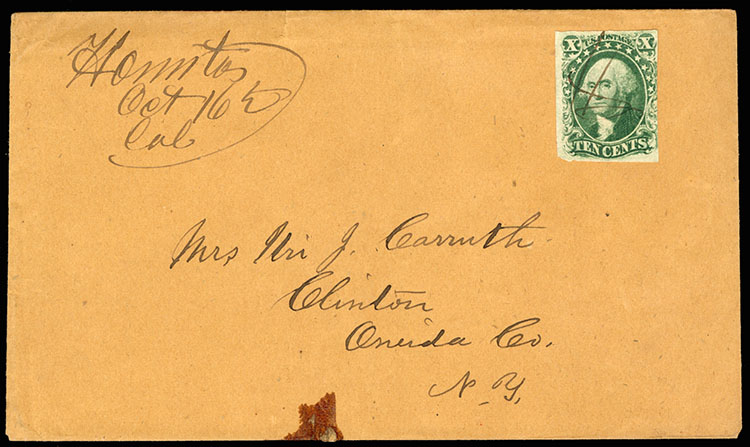 Hornitos
Oct 16th
Cal
X U.S. POSTAGE X
TEN CENTS
Mrs Uri J. Carruth
Clinton
Oneida Co.
N.Y.